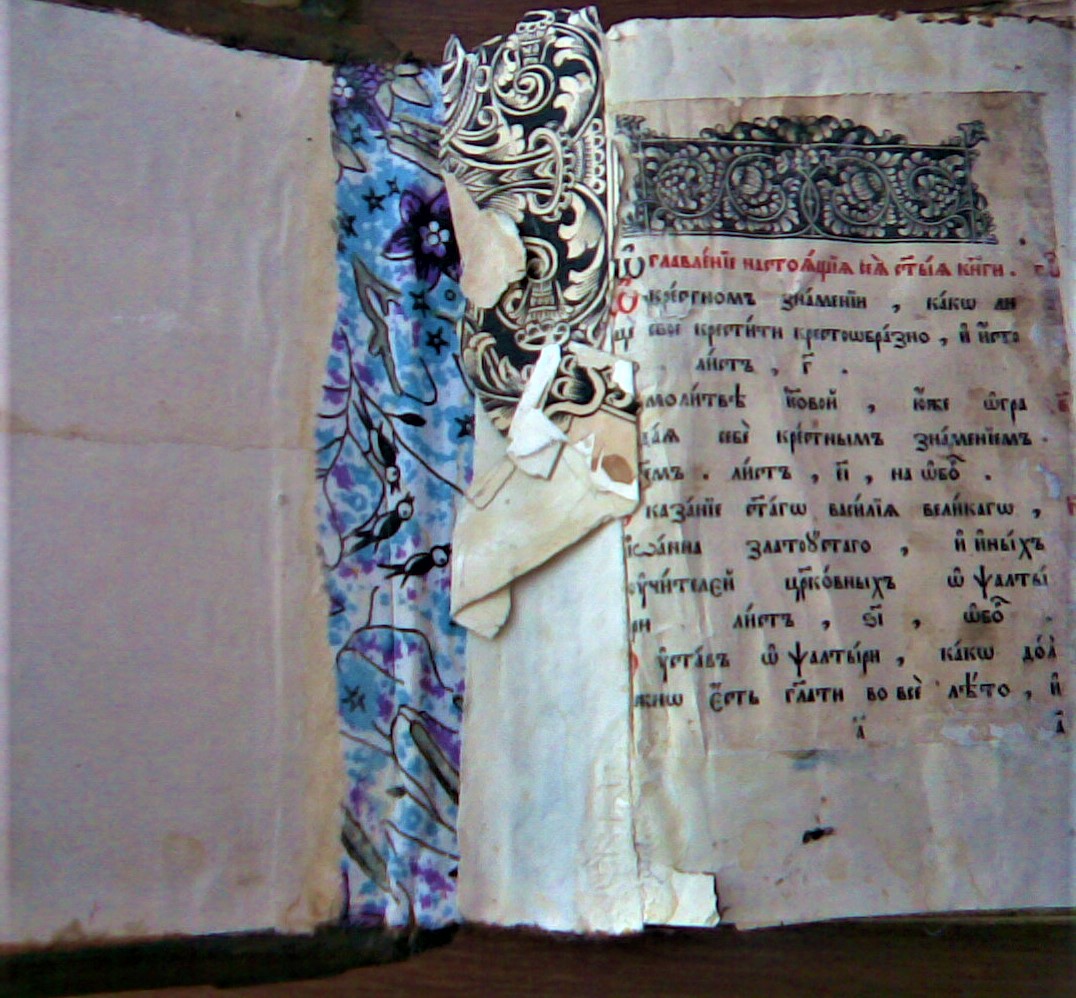 Ѡглавле́нїе настоѧ́щїѧ сеѧ̀ ст҃ы́ѧ кни́ги .
Ѿ кре́стномъ зна́менїи , ка́кѡ ли
це свое крести́ти крестоѡбра́знѡ , и҆ и҆сто
ли́стъ , г҃ .
моли́твѣ і҆сов҃ой , ю҆́же ѡ҆гра
да́ѧ себѐ кре́стнымъ зна́менїемъ .
ли́стъ , и҃і , на ѡ҆бо́ .
каза́нїе ст҃а́гѡ васи́лїѧ вели́кагѡ ,
і҆ѡа́нна златоꙋ́стаго , и҆ и҆ны́хъ
ᲂу҆чи́телей цр҃ко́вныхъ ѿ ѱалты́
ри ли́стъ , ѕ҃і , ѡ҆бо́ .
ᲂу҆ста́въ ѿ ѱалты́ри , ка́кѡ до́л
жнѡ є҆́сть гл҃ати во всѐ лѣ́то , и҆
а҃